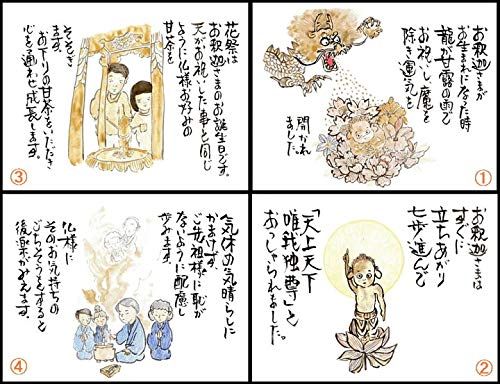 お釈迦さまが
お生まれになった時
龍が甘露の雨で
お祝いし魔を
除き運気を
開かれ
ました。
①
お釈迦さまは
すぐに
立ちあがり
七歩進んで
「天上天下
唯我独尊」と
おっしゃられました。
②
花祭は
お釈迦さまのお誕生日です。
天がお祝いした事と同じ
ように仏様お好みの
甘茶を
そそぎ
ます。
お下りの甘茶をいただき
心を通わせ成長します。
③
気休の気晴らしに
かまけず、
ご先祖様に恥が
ないように配慮し
仏様に
そのお気持ちの
ごちそうをすると
後楽がみえます。
④